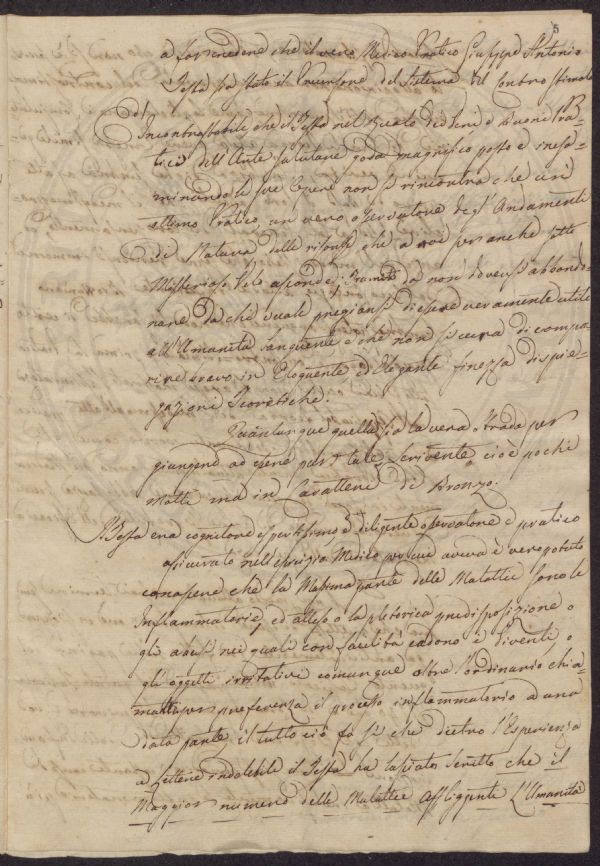 5
a far vedere che il vero Medico Pratico Giuseppe Antonio
Testa sia stato il Precursore del Sistema del Contro stimolo
Incontrastabile, che il Testa nel Ruolo dei veri e buoni Pra-
tici dell'Arte salutare goda magnifico posto e inesa-
minando le sue Opere non si rincontra che un'
ottimo Pratico, un vero osservatore degl'Andamenti
di Natura, delle risorse che a noi per anche sotto
Misterioso Velo asconde, da non doversi abbando-
nare da chi vuole pregiarsi di essere veramente utile
all'Umanità languente e che non si cura di compa-
rire bravo in Eloquente ed Elegante finezza di spie-
gazioni Teoretiche.
Quantunque quella sia la vera strada per
giungere ad essere tale scrivente cioè pochi
Motti ma in Carattere di Bronzo.
Il Testa era cognitore espertissimo, e diligente osservatore e pratico
assicurato nell'esercizio Medico per cui aveva è vero potuto
conoscere che la Massima parte delle Malattie sono le
Inflammatorie, ed atteso o la pletorica predisposizione o
gli abusi nei quali con facilità cadono i viventi, o
gli oggetti irritativi comunque oltre l'ordinario chia-
mati per preferenza il processo inflammatorio ad una
data parte il tutto ciò fà sì che dietro l'Esperienza
a Lettere indelebile il Testa ha lasciato scritto che il
Maggior numero delle Malattie affliggente L'Umanità